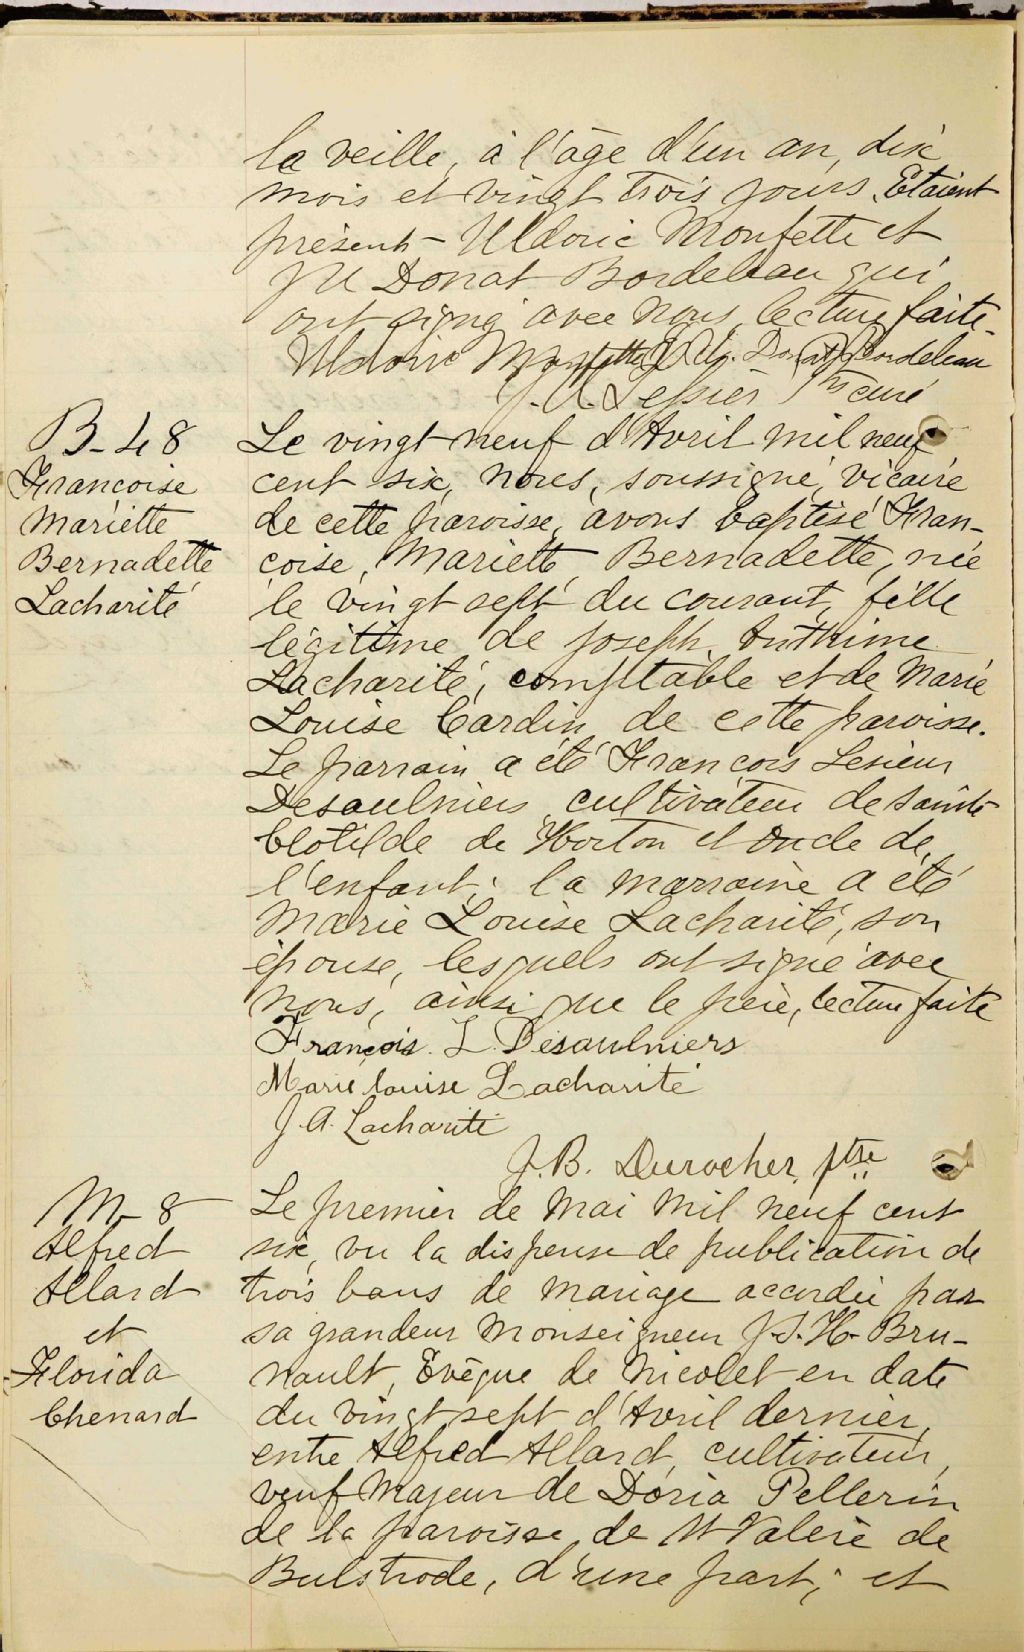 la veille, à l'âge d'un an, dix
mois et vingt trois jours. Etaient
présents Uldoric Monfette et
J U Donat Bordeleau qui
ont signé avec nous, lecture faite.
Uldoric Monfette J. U. Donat Bordeleau
J. A. Lessier Ptre curé
B-48
Françoise
Mariette
Bernadette
Lacharité
Le vingt neuf d'Avril mil neuf
cent six, nous, soussigné, vicaire
de cette paroisse, avons baptisé Fran-
çoise, Mariette, Bernadette, née
le vingt sept du courant, fille
légitime de Joseph Anthime
Lacharité, comptable et de Marie
Louise Cardin de cette paroisse.
Le parrain a été François Lesieur
Desaulniers, cultivateur de Sainte
Clotilde de Horton et oncle de
l'enfant; la marraine a été
Marie Louise Lacharité, son
épouse, lesquels ont signé avec
nous, ainsi que le père, lecture faite
François. L. Désaulniers
Marie louise Lacharité
J. A. Lacharité
J. B. Durocher, ptre
M-8
Alfred
Allard
et
Florida
Chenard
Le premier de Mai mil neuf cent
six, vu la dispense de publication de
trois bans de mariage accordée par
sa grandeur Monseigneur J. S. H. Bru-
nault, Evêque de Nicolet en date
du vingt sept d'Avril dernier,
entre Alfred Allard, cultivateur,
veuf majeur de Doria Pellerin
de la paroisse de St Valère de
Bulstrode, d'une part; et